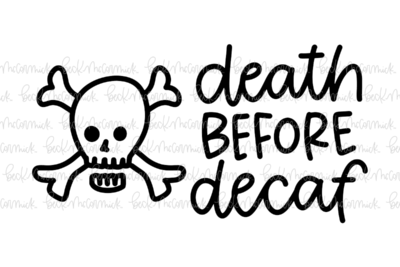 death
BEFORE
decaf